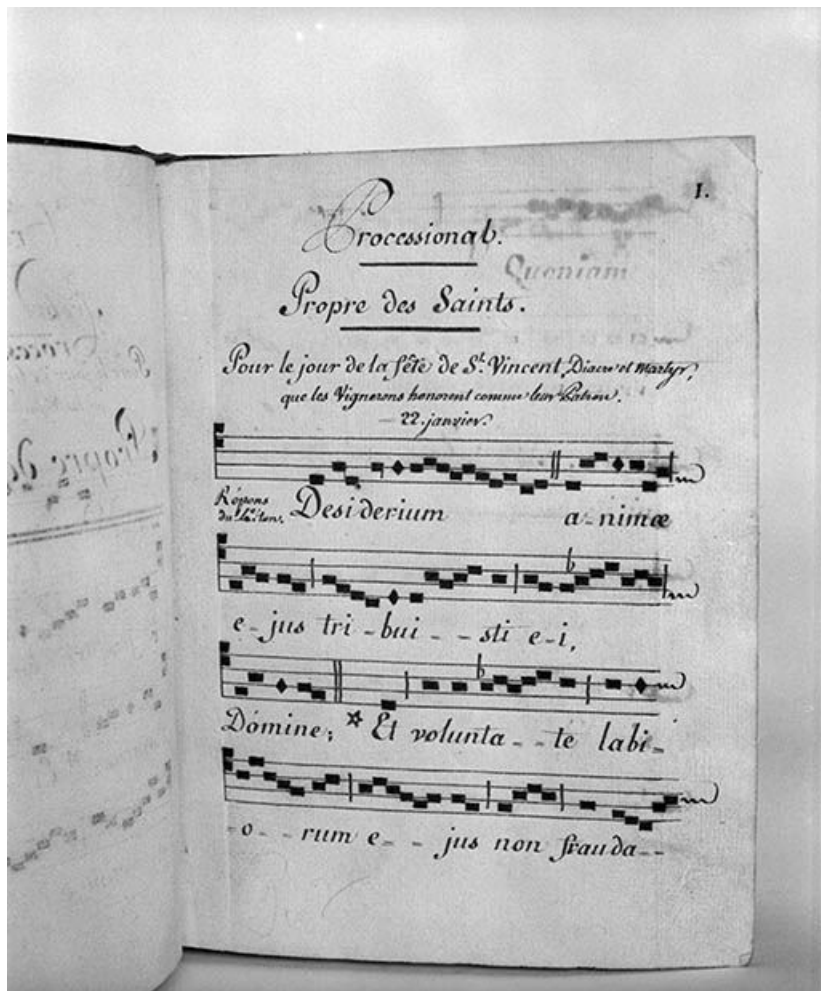 1.
Processional.
Propre des Saints.
Pour le jour de la fête de St. Vincent, Diacre et Martyr,
que les Vignerons honorent comme leur Patron.
22. janvier.
Répons
Desiderium a-nimæ
e-jus tri-bui--sti e-i,
Domine; * Et volunta--te labi-
-o--rum e--jus non frauda--
Quoniam